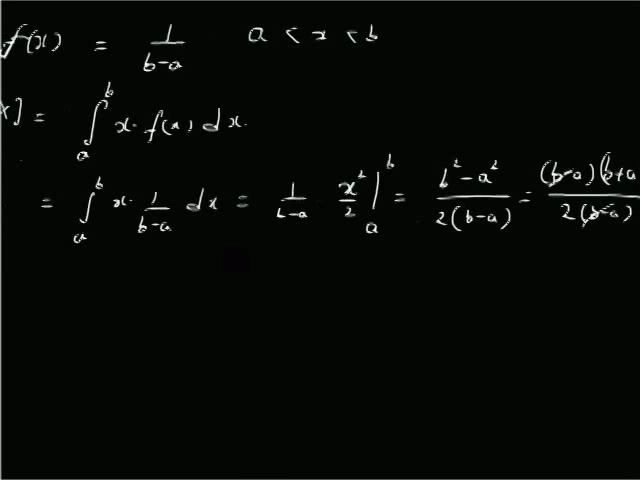 f(x) = 1/(b-a) a < x < b
x] = ∫_a^b x · f(x) dx.
= ∫_a^b x · 1/(b-a) dx = 1/(b-a) x²/2 |_a^b = (b²-a²)/(2(b-a)) = (b-a)(b+a/2(b-a)